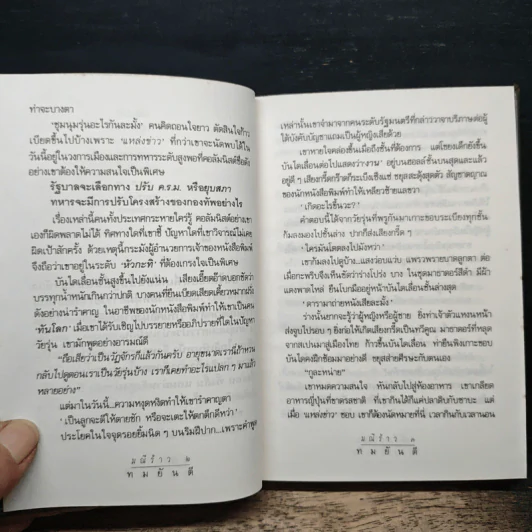 ท่าจะบางตา
'ชุมนุมรุ่นอะไรกันละมั้ง' คนคิดถอนใจยาว ตัดสินใจก้าว
เบียดขึ้นไปข้างบนเพราะ 'แหล่งข่าว' ที่กว่าเขาจะนัดพบได้ใน
วันนี้อยู่ในวงการเมืองและการทหารระดับสูงพอที่คอลัมนิสต์ชื่อดัง
อย่างเขาต้องให้ความสนใจเป็นพิเศษ
รัฐบาลจะเลือกทาง ปรับ ค.ร.ม. หรือยุบสภา
ทหารจะมีการปรับโครงสร้างของกองทัพอย่างไร
เรื่องเหล่านี้คนทั้งประเทศกระหายใคร่รู้ คอลัมนิสต์อย่างเขา
เองก็ผิดพลาดไม่ได้ ทิศทางใดที่เขาชี้ ปัญหาใดที่เขาวิจารณ์ไม่เคย
ผิดเป้าสักครั้ง ด้วยเหตุนี้กระมังผู้อำนวยการเจ้าของหนังสือพิมพ์
จึงถือว่าเขาอยู่ในระดับ 'หัวกะทิ' ที่ต้องเกรงใจเป็นพิเศษ
บันไดเลื่อนชั้นสูงขึ้นไปยังแน่น เสียงเอี๊ยดอ๊าดบอกชัดว่า
บรรทุกน้ำหนักเกินกว่าปกติ บางคนที่ยืนเบียดเสียดเคี้ยวหมากฝรั่ง
ดังอย่างน่ารำคาญ ในอาชีพของนักหนังสือพิมพ์ทำให้เขาเป็นคน
'ทันโลก' เมื่อเขาได้รับเชิญไปบรรยายหรืออภิปรายที่ใดในปัญหา
วัยรุ่น เขามักพูดอย่างอารมณ์ดี
"ถือเสียว่าเป็นวัฏจักรก็แล้วกันครับ อายุขนาดเรานี่ถ้าหวน
กลับไปดูตอนเราเป็นวัยรุ่นบ้าง เราก็เคยทำอะไรแปลก ๆ มาแล้ว
หลายอย่าง"
แต่มาในวันนี้...ความหงุดหงิดทำให้เขารำคาญตา
'เป็นลูกจะตีให้ตายซัก หรือจะเตะให้ตกตึกดีหว่า'
ประโยคในใจจุดรอยยิ้มนิด ๆ บนริมฝีปาก...เพราะคำพูด
มณีร้าว ๒
ทมยันตี
เหล่านั้นเขาจำมาจากคนระดับรัฐมนตรีที่กล่าววาจาบริภาษต่อผู้
ใต้บังคับบัญชาแถมเป็นผู้หญิงเสียด้วย
เขาหายใจคล่องขึ้นเมื่อถึงชั้นที่ต้องการ แต่โขยงเด็กยังขึ้น
บันไดเลื่อนต่อไปแสดงว่า'งาน' อยู่บนฮอลล์ชั้นบนสุดและแล้ว
อยู่ดี ๆ เสียงกรี๊ดกร๊าดก็ระเบิงเซ็งแซ่ หยุดสะดุ้งสุดตัว สัญชาตญาณ
ของนักหนังสือพิมพ์ทำให้เหลียวซ้ายแลขวา
"เกิดอะไรขึ้นวะ?"
คำตอบนี้ได้จากวัยรุ่นที่พรูกันมาเกาะขอบระเบียงทุกชั้น
ก้มลงมองไปชั้นล่าง ปากก็ส่งเสียงกรี๊ด ๆ
'ใครมันโดดลงไปมั้งหว่า?'
เขาก้มลงไปดูบ้าง...แสงวอบแวบ แพรวพรายบาดลูกตา ต่อ
เมื่อกะพริบจึงเห็นชัดว่าร่างโปร่ง บาง ในชุดมาธาดอร์สีดำ มีผ้า
แดงพาดไหล่ ยืนโบกมืออยู่หน้าบันไดเลื่อนชั้นล่างสุด
'ดารามาถ่ายหนังเสียละมั้ง'
ร่างนั้นยากจะรู้ว่าผู้หญิงหรือผู้ชาย ยิ่งทำเจ้าตัวแทงหน้า
ส่งจูบไปรอบ ๆ ยิ่งก่อให้เกิดเสียงกรี๊ดเป็นทวีคูณ มาธาดอร์ที่หลุด
จากสเปนมาสู่เมืองไทย ก้าวขึ้นบันไดเลื่อน ท่ายืนพิงเกาะขอบ
บันไดคงฝึกซ้อมมาอย่างดี หยุดส่ายศีรษะกับตนเอง
"กูละหน่าย"
เขาหมดความสนใจ หันกลับไปสู่ห้องอาหาร เขาเกลียด
อาหารญี่ปุ่นที่ขาดรสชาติ ที่เขากินได้ก็แค่ปลาดิบกับซาบะ แต่
เมื่อ 'แหล่งข่าว' ชอบ เขาก็ต้องนัดหมายที่นี่ เวลากินกับเวลานอน
มณีร้าว ๓
ทมยันตี